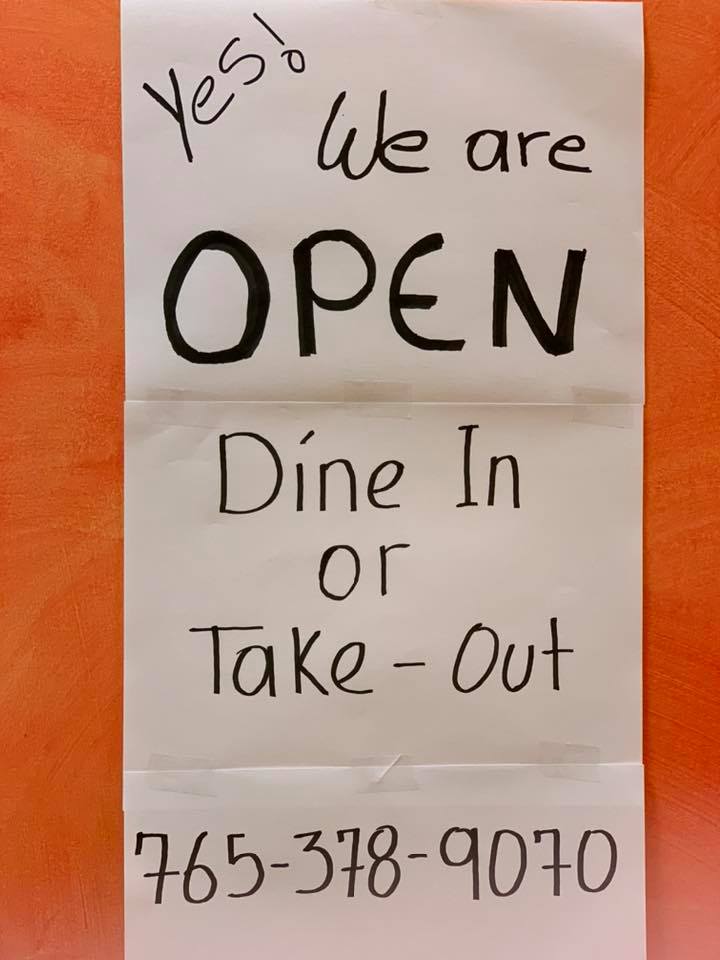 Yes!
We are
OPEN
Dine In
or
Take-Out
765-378-9070